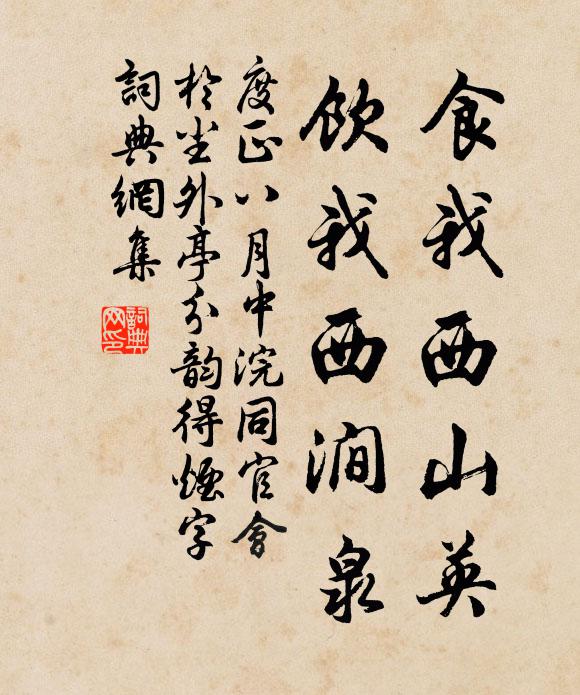 食我西山英
飲我西澗泉
度正八月中浣同官會
於坐外亭分韵得煙字
詞典網集
詞典
网印